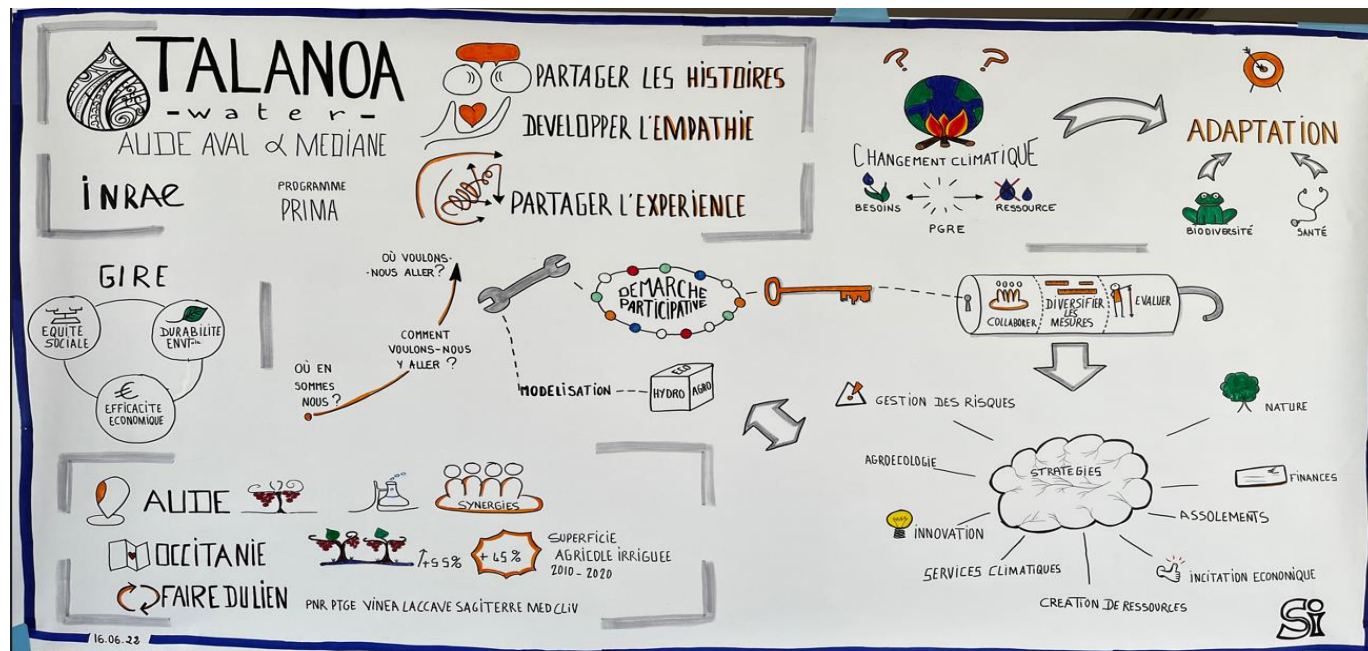 TALANOA
-water-
AUDE AVAL & MEDIANE
INRAE
PROGRAMME
PRIMA
PARTAGER LES HISTOIRES
DEVELOPPER L'EMPATHIE
PARTAGER L'EXPERIENCE
? ?
CHANGEMENT CLIMATIQUE
BESOINS
RESSOURCE
PGRE
ADAPTATION
BIODIVERSITÉ
SANTÉ
GIRE
EQUITE
SOCIALE
DURABILITE
ENVTale
€
EFFICACITE
ECONOMIQUE
OÙ VOULONS-
-NOUS ALLER?
COMMENT
VOULONS-NOUS
Y ALLER ?
OÙ EN
SOMMES
NOUS ?
DEMARCHE
PARTICIPATIVE
MODELISATION
ECO
HYDRO
AGRO
COLLABORER
DIVERSIFIER
LES
MESURES
EVALUER
GESTION DES RISQUES
AGROECOLOGIE
INNOVATION
SERVICES CLIMATIQUES
CREATION DE RESSOURCES
STRATEGIES
NATURE
FINANCES
ASSOLEMENTS
INCITATION ECONOMIQUE
AUDE
SYNERGIES
OCCITANIE
+55%
+45%
SUPERFICIE
AGRICOLE IRRIGUEE
2010-2020
FAIRE DU LIEN
PNR PTGE VINEA LACCAVE SAGITERRE MEDCLIV
16.06.22
Si